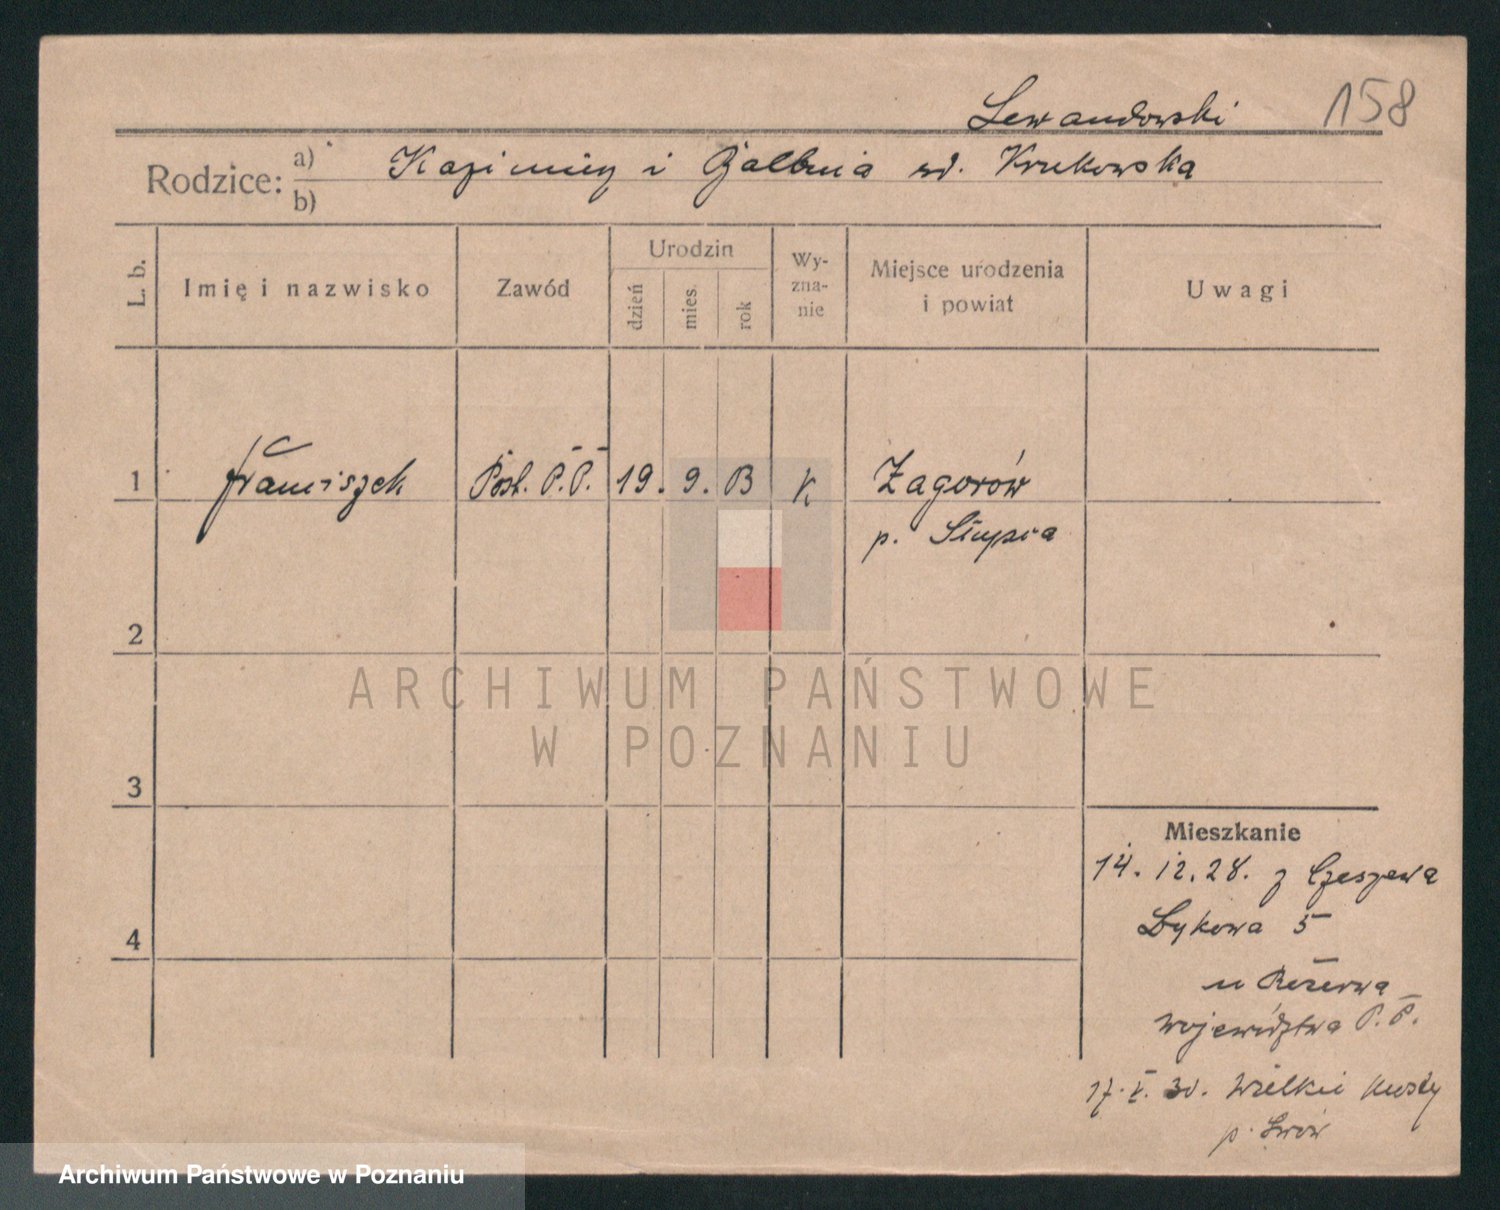 Lewandowski 158
Rodzice: a) Kazimierz i Balbina ur. Krukowska
b)
L. b. Imię i nazwisko Zawód Urodzin dzień mies. rok Wy-zna-nie Miejsce urodzenia i powiat Uwagi
1 Franciszek Post. P.P. 19. 9. K Zagorów
p. Słupca
2
3
4
Mieszkanie
14. 12. 28. z Czeszewa
Bykowa 5
Rezerwa
województwa P.P.
17. V. 30. Wielkie
p. Lwów
ARCHIWUM PAŃSTWOWE
W POZNANIU
Archiwum Państwowe w Poznaniu